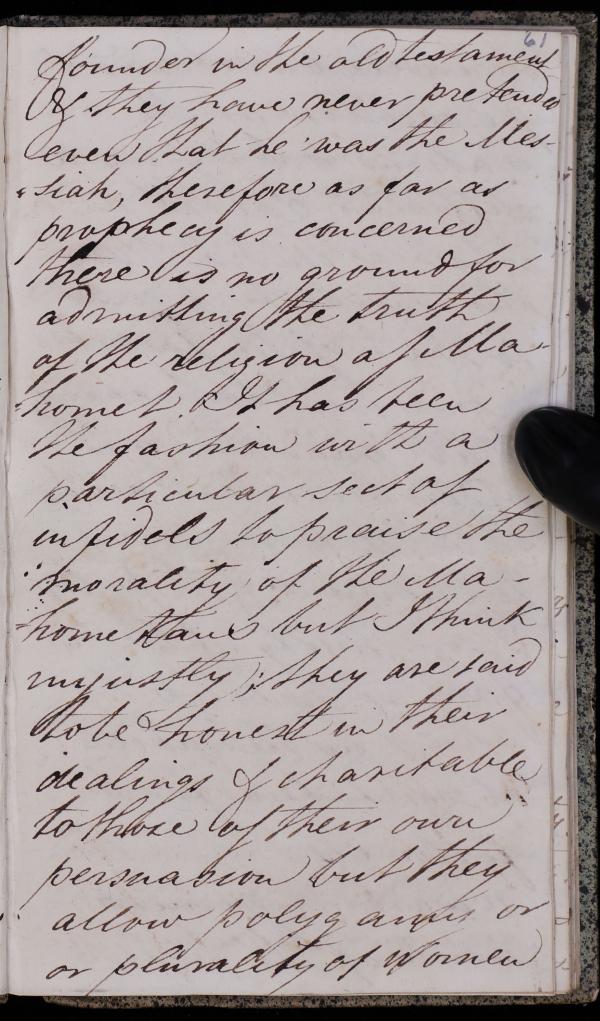 61
founder in the old testament
& they have never pretended
even that he was the Mes-
siah, therefore as far as
prophecy is concerned
there is no ground for
admitting the truth
of the religion of Ma-
homet. It has been
the fashion with a
particular sect of
infidels to praise the
morality of the Ma-
hometans but I think
unjustly; they are said
to be honest in their
dealings & charitable
to those of their own
persuasion but they
allow polygamy or
or plurality of women